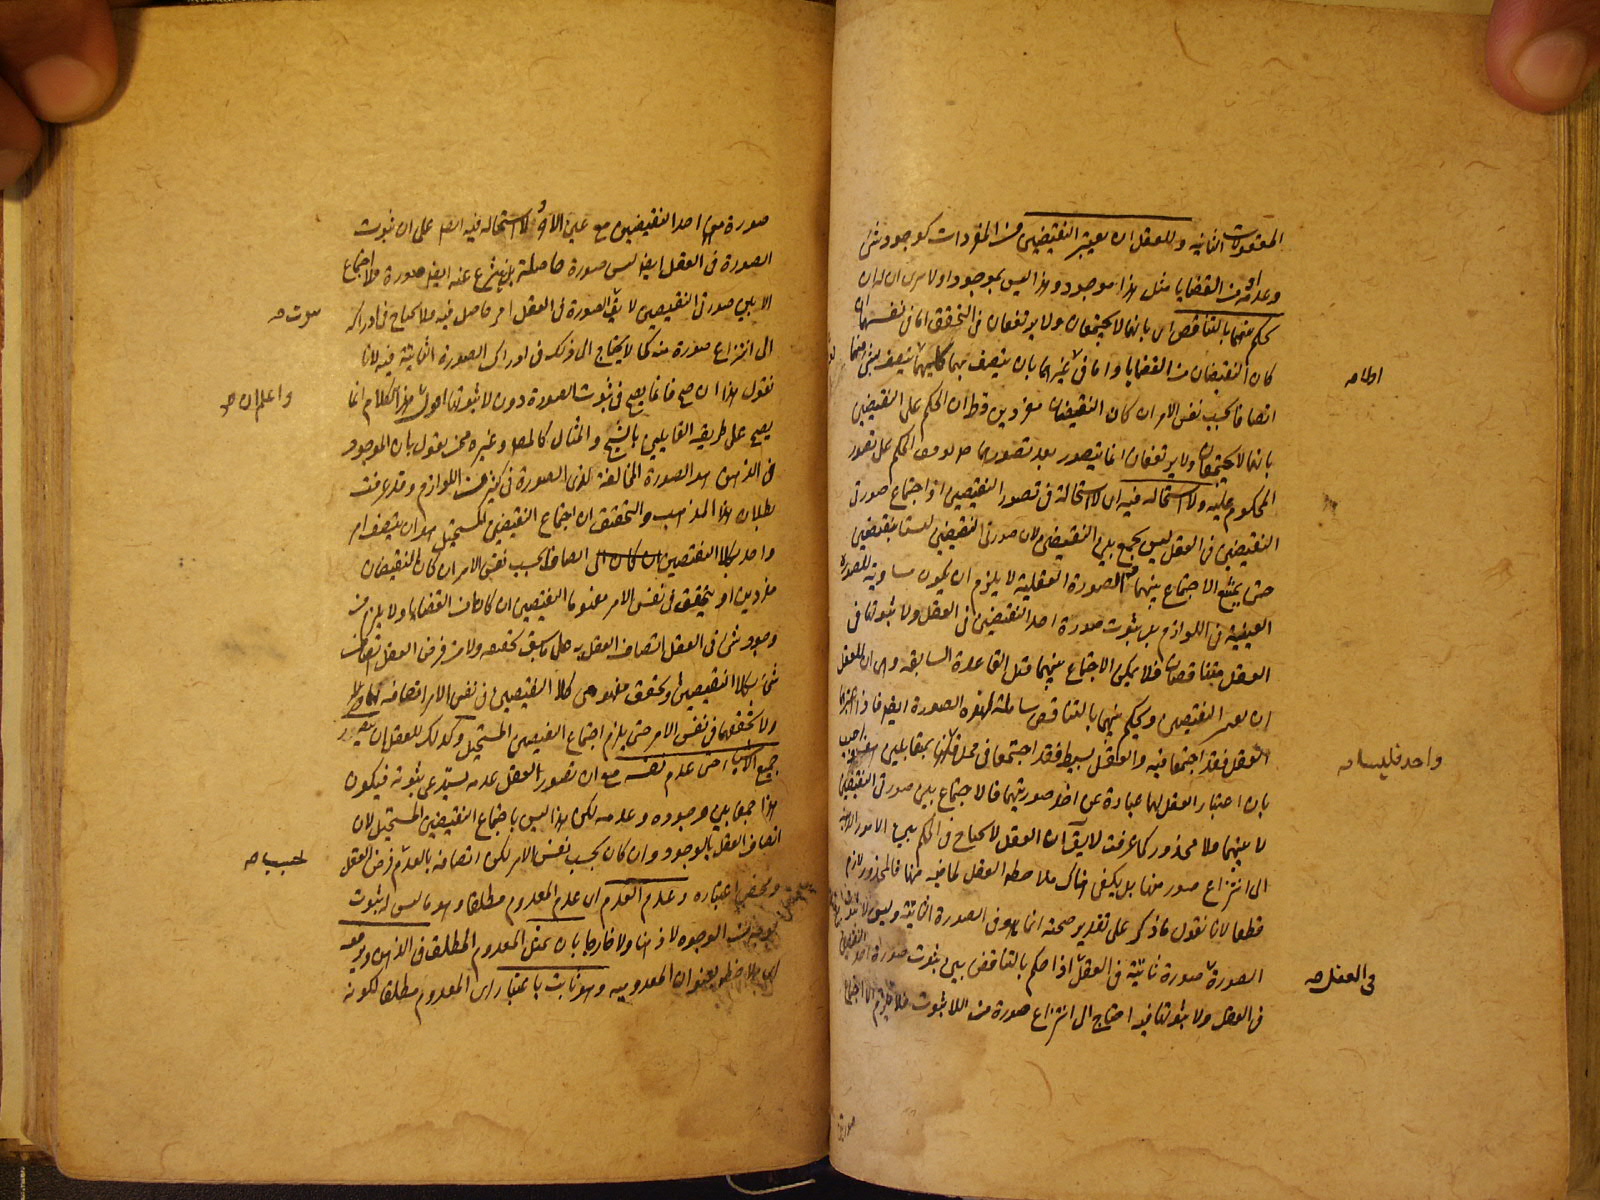 المعقولات الثانية وللعقل ان يعتبر النقيضين من المفردات كوجود شئ
وعدمه او من القضايا مثل هذا موجود وهذا ليس بموجود
حكم بينهما بالتناقض اى بانهما لا يجتمعان ولا يرتفعان فى التحقق اما فى نفسهما ان
كان النقيضان من القضايا واما فى غيرهما بان يتصف بهما كليهما
اتصافا بحسب نفس الامر ان كان النقيضان مفردين فظ ان الحكم على النقيضين
بانهما لا يجتمعان ولا يرتفعان انما يتصور بعد تصورهما الحكم على تصور
المحكوم عليه ولا استحالة فيه اى لا استحالة فى تصور النقيضين اذ اجتماع صورتى
النقيضين فى العقل ليس بجمع بين النقيضين لان صورتى النقيضين ليستا بنقيضين
حتى يمتنع الاجتماع بينهما الصورة العقلية لا يلزم ان يكون مساوية للصورة
العينية فى اللوازم بل ثبوت صورة احد النقيضين فى العقل ولا ثبوتها فى
العقل متناقضان فلا يمكن الاجتماع بينهما قيل القاعدة السابقة وهى ان للعقل
ان يعتبر النقيضين ويحكم بينهما بالتناقض شاملة لهذه الصورة ايضا فاذا اعتبرهما
العقل فقد اجتمعا فيه والعقل بسيط فقد اجتمعا فى محل
بان اعتبار العقل لهما عبارة عن اخذ صورتيهما فالاجتماع بين صورتى النقيضين
لا بينهما فلا محذور كما عرفت لا يق ان العقل لا يحتاج فى الحكم بين الامور
الى انتزاع صور منها بل يكفى هناك ملاحظة العقل لما فيه منها فالمحذور لازم
قطعا لانا نقول ما ذكر على تقدير صحته انما هو فى الصورة الثابتة
الصورة صورة ثابتة فى العقل اذا حكم بالتناقض بين ثبوت صورة احد النقيضين
فى العقل ولا ثبوتها فيه احتاج الى انتزاع صورة من اللا ثبوت فلا يلزم الا اجتماع
واحد
فى العقل صح
صورة من احد النقيضين مع عين الآخر ولا استحالة فيه على ان ثبوت
الصورة فى العقل ايضا ليس صورة حاصلة بل ينتزع عنه ايضا صورة فلا اجتماع
الا بين صورتى النقيضين لا يق الصورة فى العقل امر حاصل فيه فلا يحتاج فى ادراكه
الى انتزاع صورة منه كما لا يحتاج الى ذلك فى ادراك الصورة الثابتة فيه لانا
نقول هذا ان صح فانما يصح فى ثبوت الصورة دون لا ثبوتها هذا الكلام انما
يصح على طريقة القايلين بالشبح والمثال كالمص وغيره ممن يقول بان الموجود
فى الذهن هو الصورة المخالفة لذى الصورة فى كثير من اللوازم وقد عرفت
بطلان هذا المذهب والتحقيق ان اجتماع النقيضين المستحيل هو ان يتصف امر
واحد بكلا النقيضين اتصافا بحسب نفس الامر ان كان النقيضان
مفردين او يتحقق فى نفس الامر مفهوما النقيضين ان كانا من القضايا ولا يلزم من
وجود شئ فى العقل اتصاف العقل به على ما سبق تحقيقه ولا من فرض العقل اتصاف
شئ بكلا النقيضين او تحقق مفهومى كلا النقيضين فى نفس الامر اتصافه بهما
ولا تحققهما فى نفس الامر حتى يلزم اجتماع النقيضين المستحيل وكذلك للعقل ان يتصور
جميع الاشياء حتى عدم نفسه مع ان تصور العقل عدمه يستدعى ثبوته فيكون
هذا جمعا بين وجوده وعدمه لكن هذا ليس باجتماع النقيضين المستحيل لان
اتصاف العقل بالوجود وان كان بحسب نفس الامر لكن اتصافه بالعدم فرض العقل
ومحض اعتباره وعدم العدم اى عدم المعدوم مطلقا وهو ما ليس له ثبوت
بوجه من الوجوه لا ذهنا ولا خارجا بان تمثل المعدوم المطلق فى الذهن ويرفعه
بعنوان المعدومية وهو ثابت باعتبار اى المعدوم مطلقا لكونه
واعلم ان صح